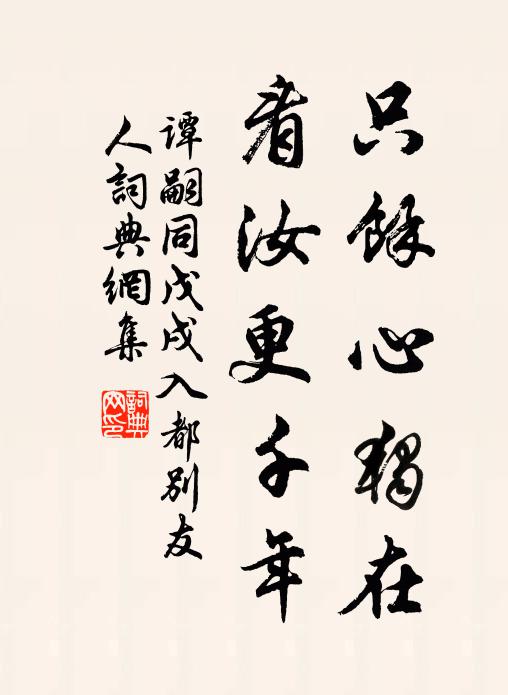 只餘心獨在
看汝更千年
谭嗣同戊戌入都别友
人詞典網集
詞典
网印